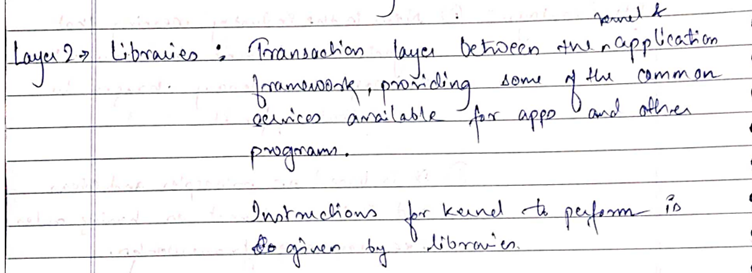 Layer 2 → Libraries : Transaction layer between the kernel & application
framework, providing some of the common
services available for apps and other
programs.
Instructions for kernel to perform is
given by libraries.